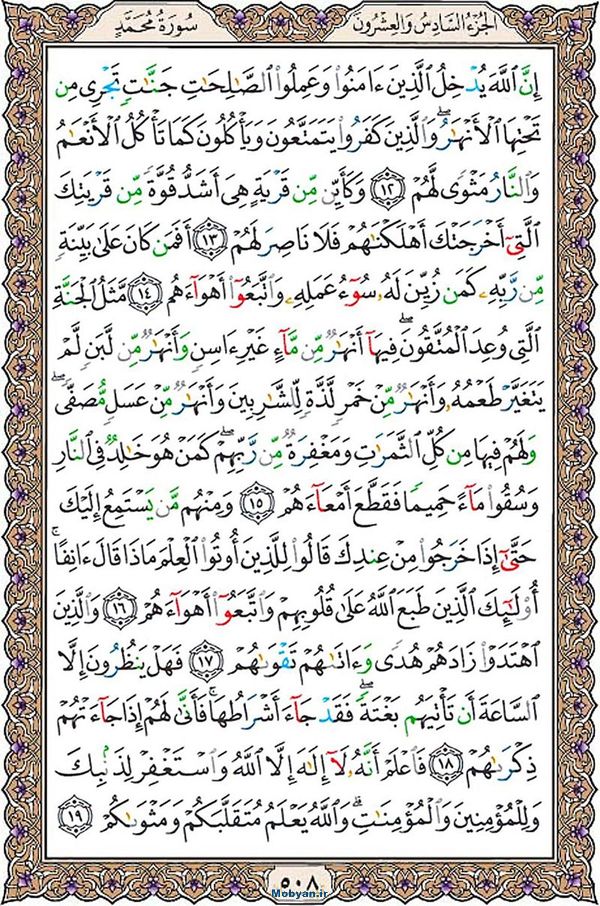 الجزء السادس والعشرون
سورة محمد
إِنَّ ٱللَّهَ يُدۡخِلُ ٱلَّذِينَ ءَامَنُواْ وَعَمِلُواْ ٱلصَّٰلِحَٰتِ جَنَّٰتٖ تَجۡرِي مِن
تَحۡتِهَا ٱلۡأَنۡهَٰرُۖ وَٱلَّذِينَ كَفَرُواْ يَتَمَتَّعُونَ وَيَأۡكُلُونَ كَمَا تَأۡكُلُ ٱلۡأَنۡعَٰمُ
وَٱلنَّارُ مَثۡوٗى لَّهُمۡ ١٢ وَكَأَيِّن مِّن قَرۡيَةٍ هِيَ أَشَدُّ قُوَّةٗ مِّن قَرۡيَتِكَ
ٱلَّتِيٓ أَخۡرَجَتۡكَ أَهۡلَكۡنَٰهُمۡ فَلَا نَاصِرَ لَهُمۡ ١٣ أَفَمَن كَانَ عَلَىٰ بَيِّنَةٖ
مِّن رَّبِّهِۦ كَمَن زُيِّنَ لَهُۥ سُوٓءُ عَمَلِهِۦ وَٱتَّبَعُوٓاْ أَهۡوَآءَهُم ١٤ مَّثَلُ ٱلۡجَنَّةِ
ٱلَّتِي وُعِدَ ٱلۡمُتَّقُونَۖ فِيهَآ أَنۡهَٰرٞ مِّن مَّآءٍ غَيۡرِ ءَاسِنٖ وَأَنۡهَٰرٞ مِّن لَّبَنٖ لَّمۡ
يَتَغَيَّرۡ طَعۡمُهُۥ وَأَنۡهَٰرٞ مِّنۡ خَمۡرٖ لَّذَّةٖ لِّلشَّٰرِبِينَ وَأَنۡهَٰرٞ مِّنۡ عَسَلٖ مُّصَفّٗىۖ
وَلَهُمۡ فِيهَا مِن كُلِّ ٱلثَّمَرَٰتِ وَمَغۡفِرَةٞ مِّن رَّبِّهِمۡۖ كَمَنۡ هُوَ خَٰلِدٞ فِي ٱلنَّارِ
وَسُقُواْ مَآءً حَمِيمٗا فَقَطَّعَ أَمۡعَآءَهُمۡ ١٥ وَمِنۡهُم مَّن يَسۡتَمِعُ إِلَيۡكَ
حَتَّىٰٓ إِذَا خَرَجُواْ مِنۡ عِندِكَ قَالُواْ لِلَّذِينَ أُوتُواْ ٱلۡعِلۡمَ مَاذَا قَالَ ءَانِفًاۚ
أُوْلَٰٓئِكَ ٱلَّذِينَ طَبَعَ ٱللَّهُ عَلَىٰ قُلُوبِهِمۡ وَٱتَّبَعُوٓاْ أَهۡوَآءَهُمۡ ١٦ وَٱلَّذِينَ
ٱهۡتَدَوۡاْ زَادَهُمۡ هُدٗى وَءَاتَىٰهُمۡ تَقۡوَىٰهُمۡ ١٧ فَهَلۡ يَنظُرُونَ إِلَّا
ٱلسَّاعَةَ أَن تَأۡتِيَهُم بَغۡتَةٗۖ فَقَدۡ جَآءَ أَشۡرَاطُهَاۚ فَأَنَّىٰ لَهُمۡ إِذَا جَآءَتۡهُمۡ
ذِكۡرَىٰهُمۡ ١٨ فَٱعۡلَمۡ أَنَّهُۥ لَآ إِلَٰهَ إِلَّا ٱللَّهُ وَٱسۡتَغۡفِرۡ لِذَنۢبِكَ
وَلِلۡمُؤۡمِنِينَ وَٱلۡمُؤۡمِنَٰتِۗ وَٱللَّهُ يَعۡلَمُ مُتَقَلَّبَكُمۡ وَمَثۡوَىٰكُمۡ ١٩
٥٠٨
Mobyan.ir